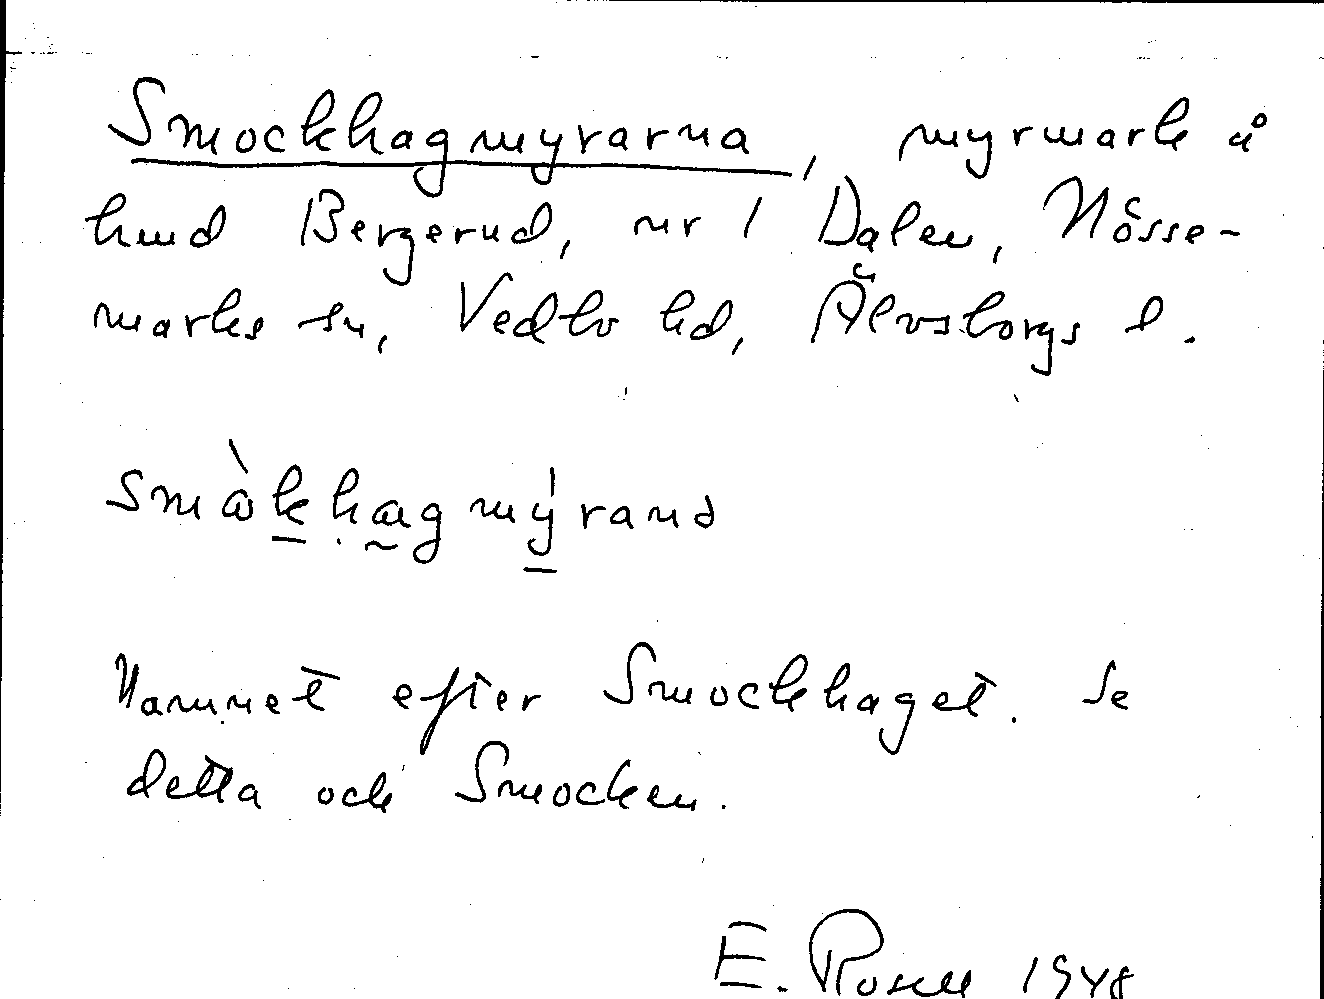 Smockhagmyrarna, myrmark å
hmd Bergerud, nr 1 Dalen, Nösse-
marks sn, Vedbo hd, Älvsborgs l.
småkhagmýrand
Namnet efter Smockhaget. Se
detta och Smocken.
E. Rosell 1948